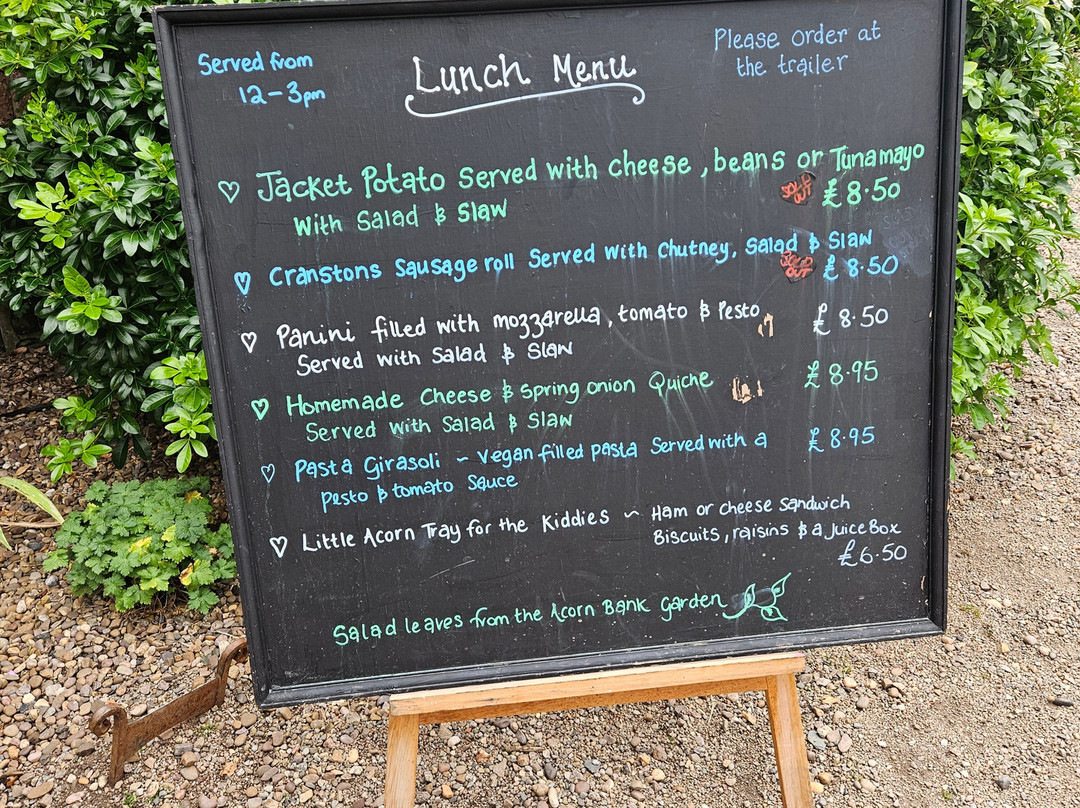 Served from
12-3pm
Lunch Menu
Please order at
the trailer
Jacket Potato Served with cheese, beans or Tunamayo
SOLD OUT £8.50
With Salad & Slaw
Cranstons Sausage roll Served with Chutney, Salad & Slaw
SOLD OUT £8.50
Panini filled with mozzarella, tomato & Pesto £8.50
Served with Salad & Slaw
Homemade Cheese & spring onion Quiche £8.95
Served with Salad & Slaw
Pasta Girasoli ~ Vegan filled pasta Served with a £8.95
Pesto & tomato Sauce
Little Acorn Tray for the Kiddies ~ Ham or cheese Sandwich
Biscuits, raisins & a Juice Box
£6.50
Salad leaves from the Acorn Bank garden